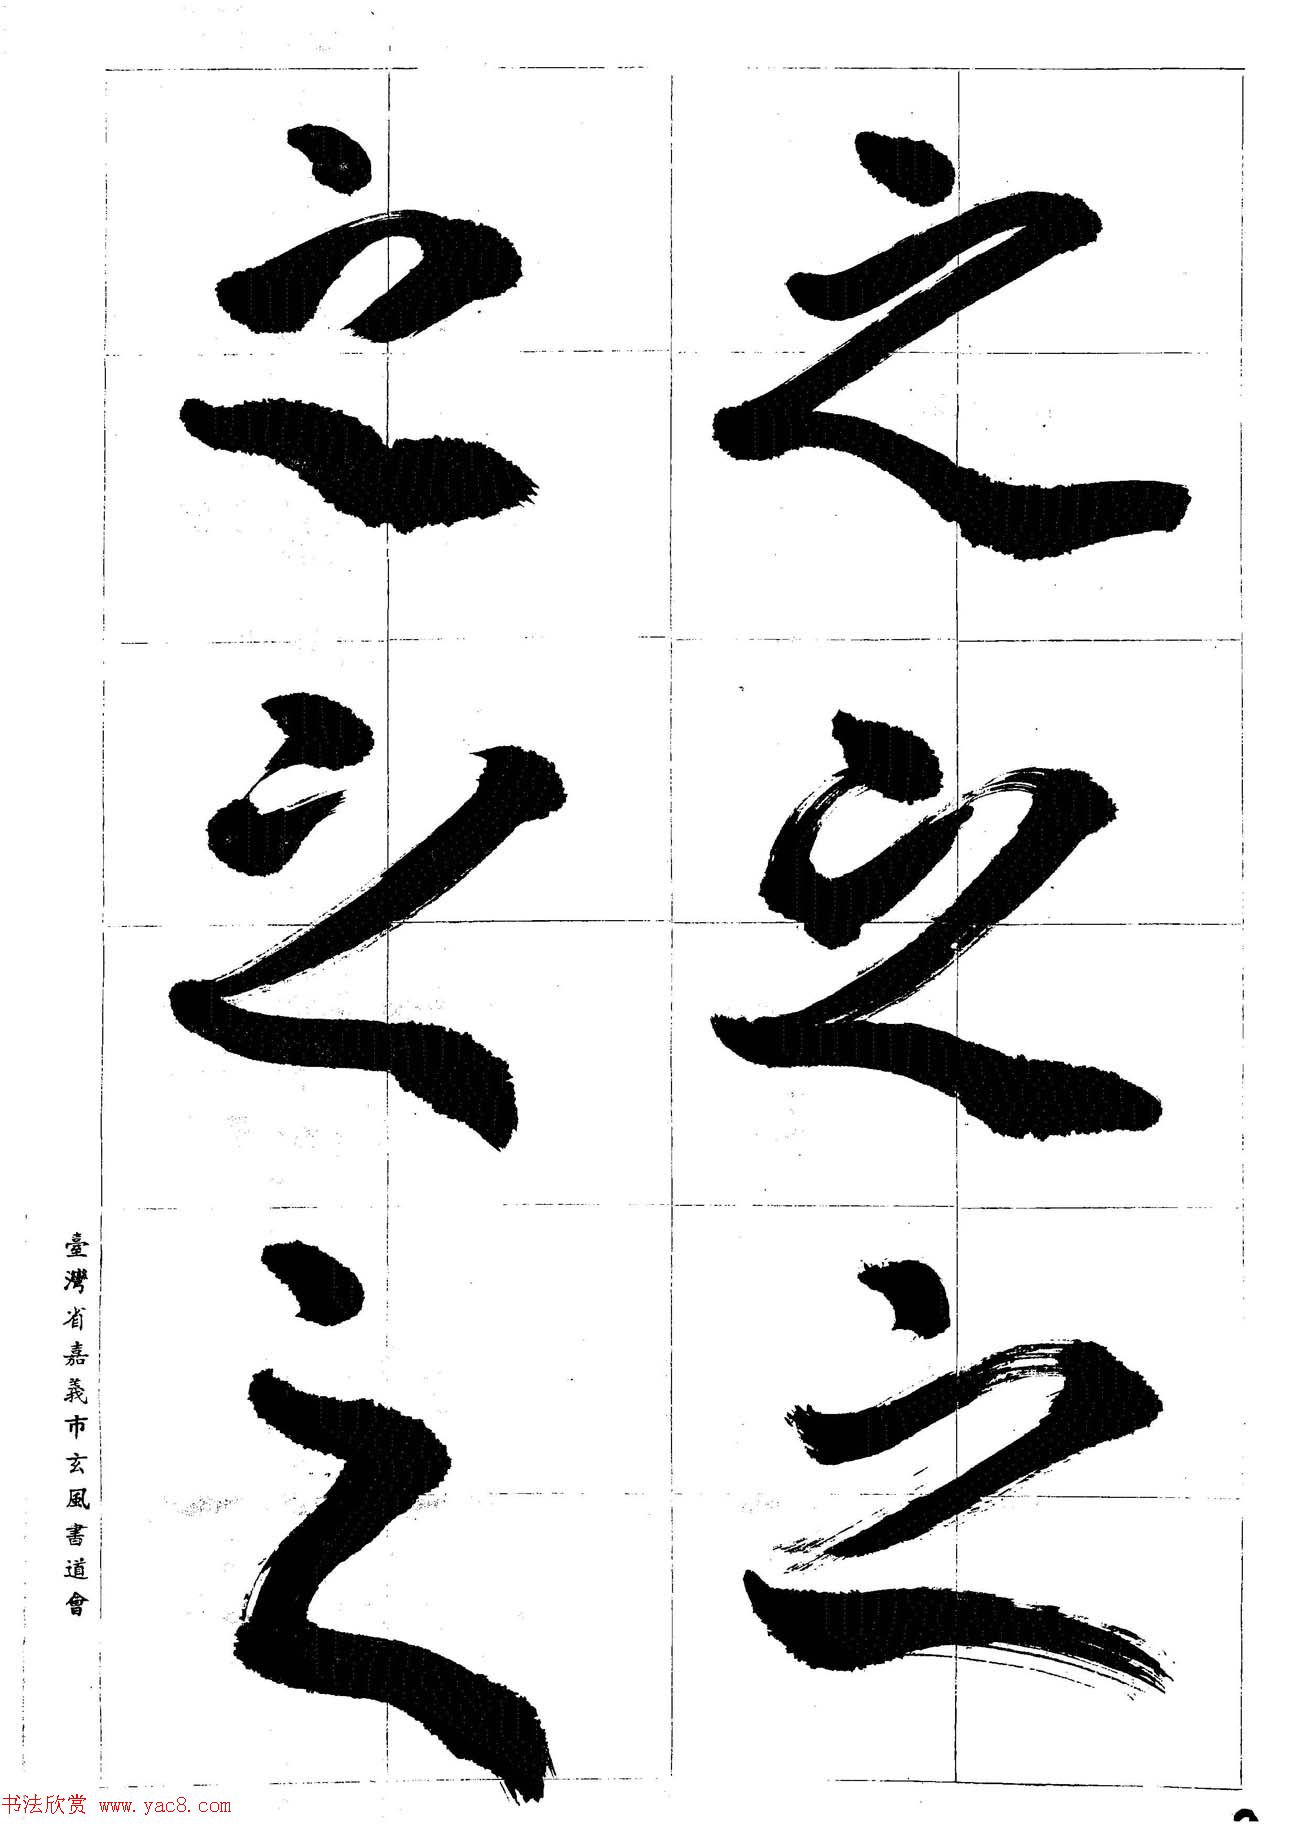 之
之
之
之
之
之
臺灣省嘉義市玄風書道會
书法欣赏 www.yac8.com